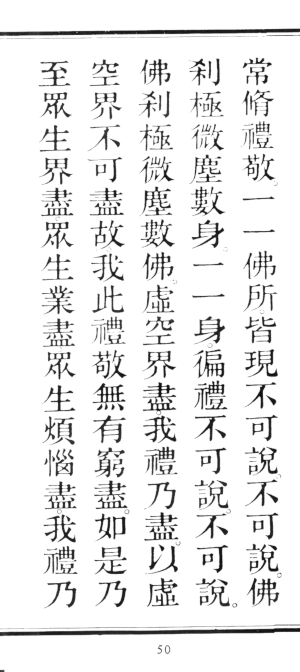 常脩禮敬。一一佛所。皆現不可說。不可說。佛
刹極微塵數身。一一身。徧禮不可說。不可說。
佛刹極微塵數佛。虛空界盡。我禮乃盡。以虛
空界不可盡故。我此禮敬無有窮盡。如是乃
至眾生界盡。眾生業盡。眾生煩惱盡。我禮乃
50